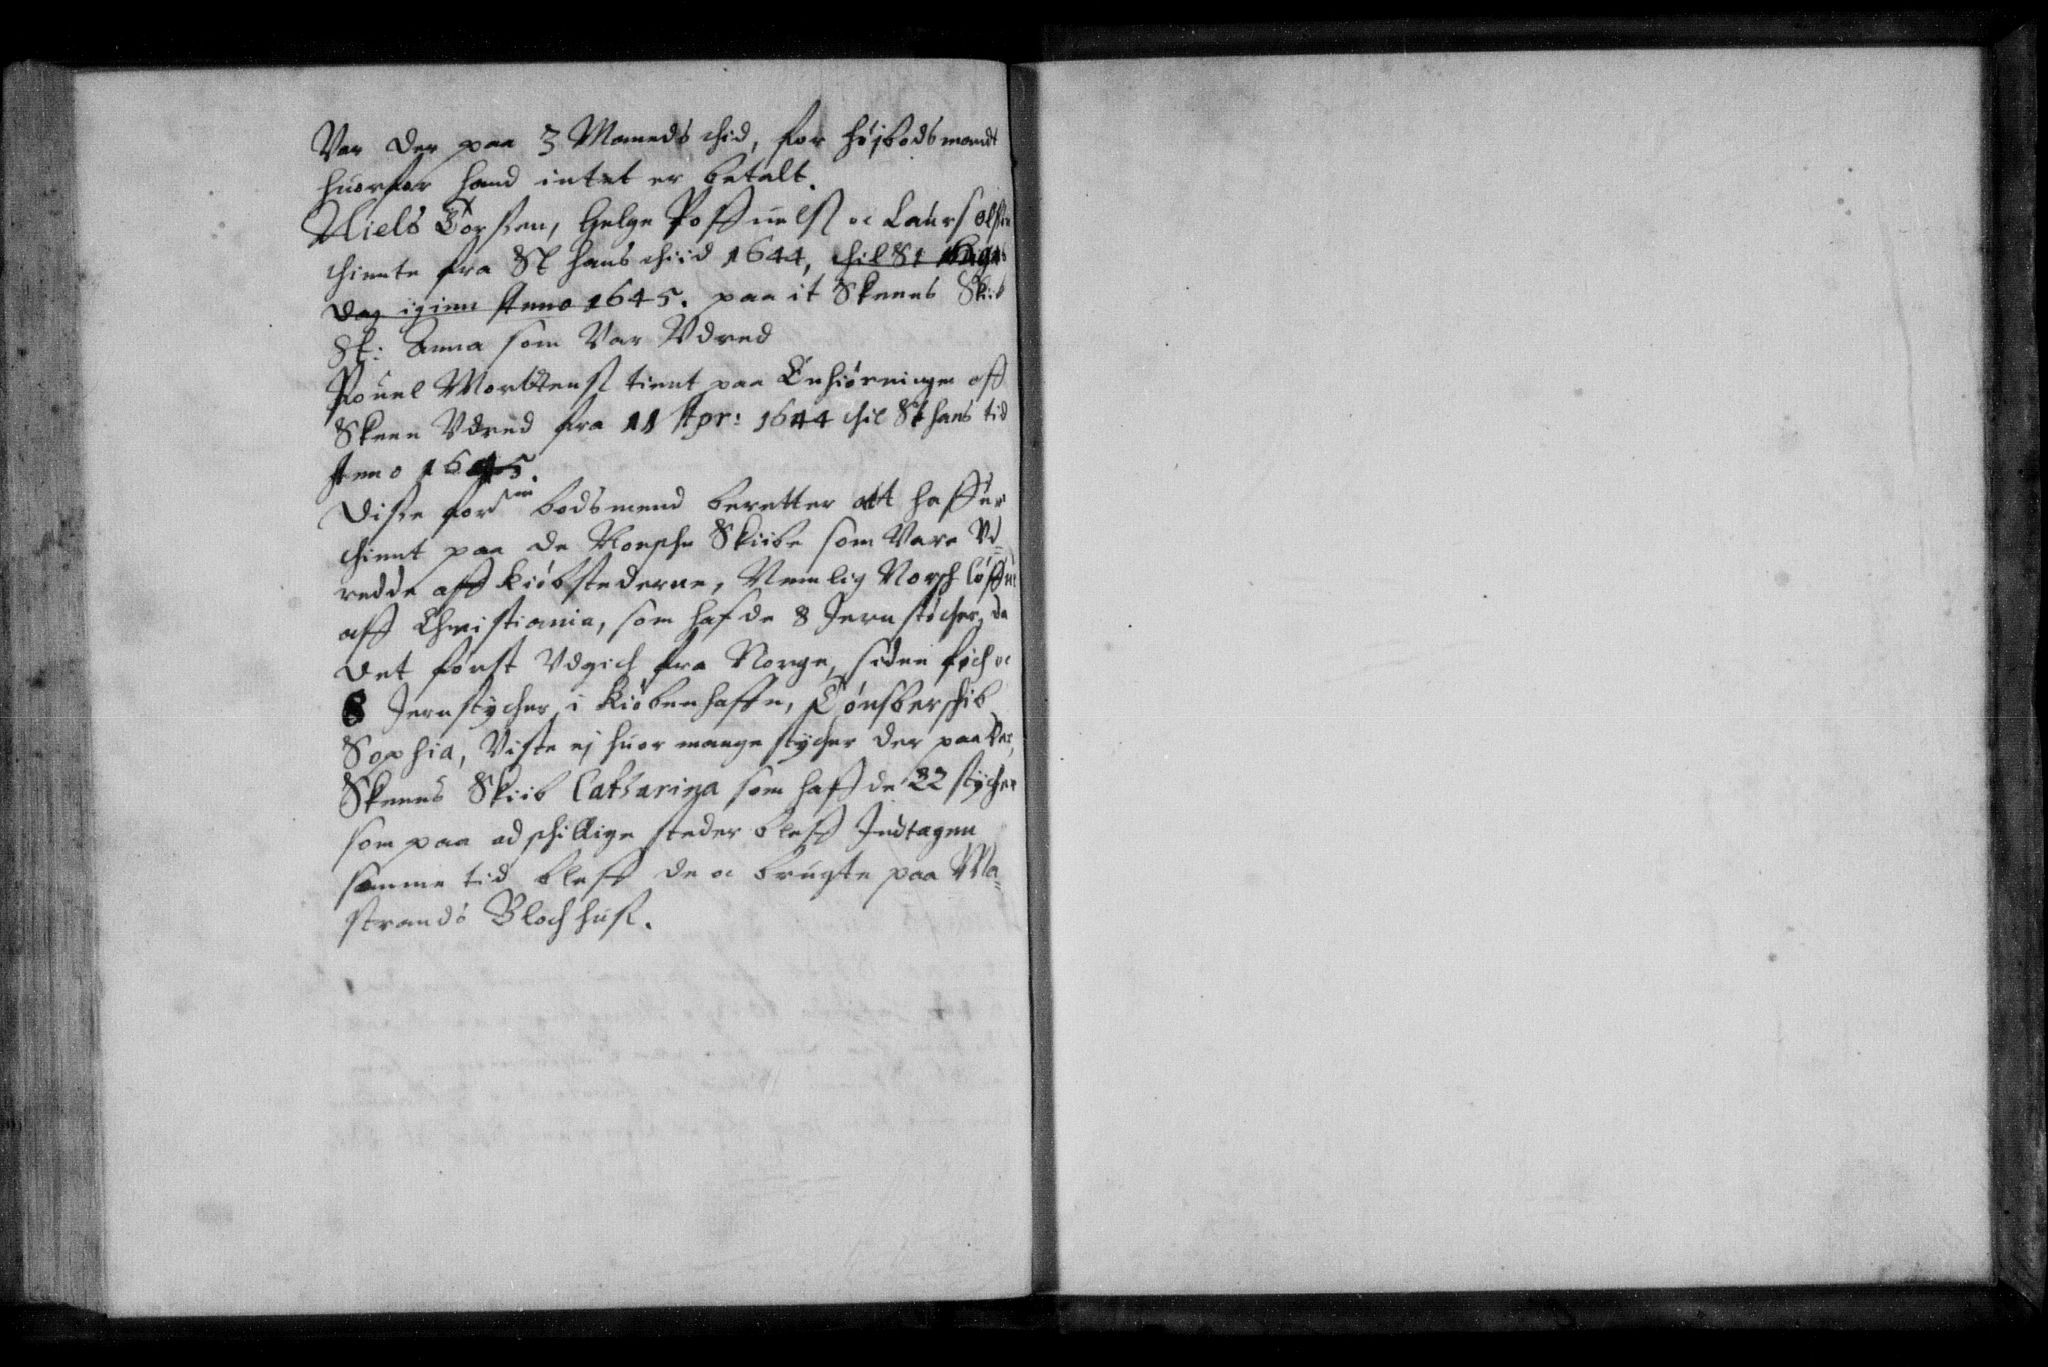 Var der paa 3 Maneds thid, for høybodsmandt
huorfor hand intet er betalt.
Niels Torsen, Helge Poffuelß oc Laurs olsen
thiente fra St hans thiid 1644, thil St
dag igien Anno 1645. paa it Skeens Skiib
St: Anna som Var Vdred
Pouel Mortensß tient paa Enhiørningen aff
Skeen Vdred fra 11 Apr: 1644 thil St hans tid
Anno 1645.
Disse for bodsmend beretter att haffue
thient paa de Norsche Skiibe som Vare Vd-
redde aff kiøbstederne, Nemlig Norsch løffue
aff Christiania, som hafde 8 Jern støcher, da
det først Vdgich fra Norge, siden fich oc
8 Jernstycher i kiøbenhaffn, Tønsberschib
Sophia, Viste ej huor mange stycher der paa Var,
Skeens Skiib Catharina som haffde 22 stycher
som paa adschillige steder bleff Indtagen
samme tid bleff de oc brugte paa Ma-
strands Blochhuß.